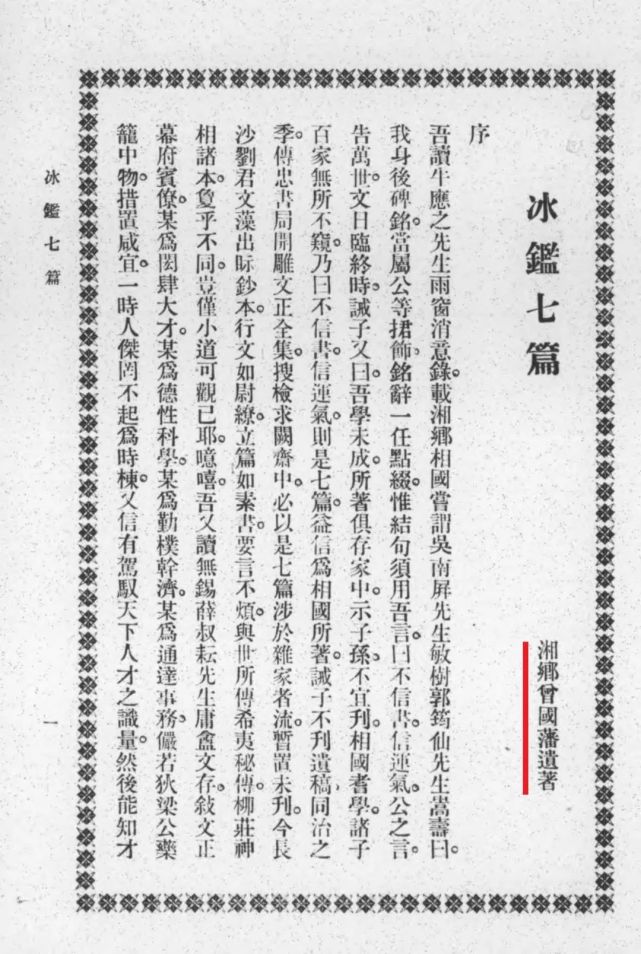 冰鑑七篇
湘鄉曾國藩遺著
序
吾讀牛應之先生雨窗消意錄。載湘鄉相國嘗謂吳南屏先生敏樹郭筠仙先生嵩壽曰。
我身後碑銘。當屬公等捃飾。銘辭一任點綴。惟結句須用吾言。曰不信書。信運氣。公之言。
告萬世。文曰臨終時。誡子又曰。吾學未成。所著俱存家中。示子孫。不宜刋。相國耆學。諸子
百家無所不窺。乃曰不信書。信運氣。則是七篇。益信爲相國所著。誡子不刋遺稿。同治之
季。傳忠書局開雕文正全集。搜檢求闕齋中。必以是七篇涉於雜家者流。暫置未刋。今長
沙劉君文藻出眎鈔本。行文如尉繚。立篇如素書。要言不煩。與世所傳希夷秘傳。柳莊神
相諸本。夐乎不同。豈僅小道可觀已耶。噫嘻。吾又讀無錫薛叔耘先生庸盦文存。敍文正
幕府賓僚。某爲閎肆大才。某爲德性科學。某爲勤樸幹濟。某爲通達事務。儼若狄梁公藥
籠中物。措置咸宜。一時人傑罔不起爲時棟。又信有駕馭天下人才之識量。然後能知才
冰鑑七篇
一